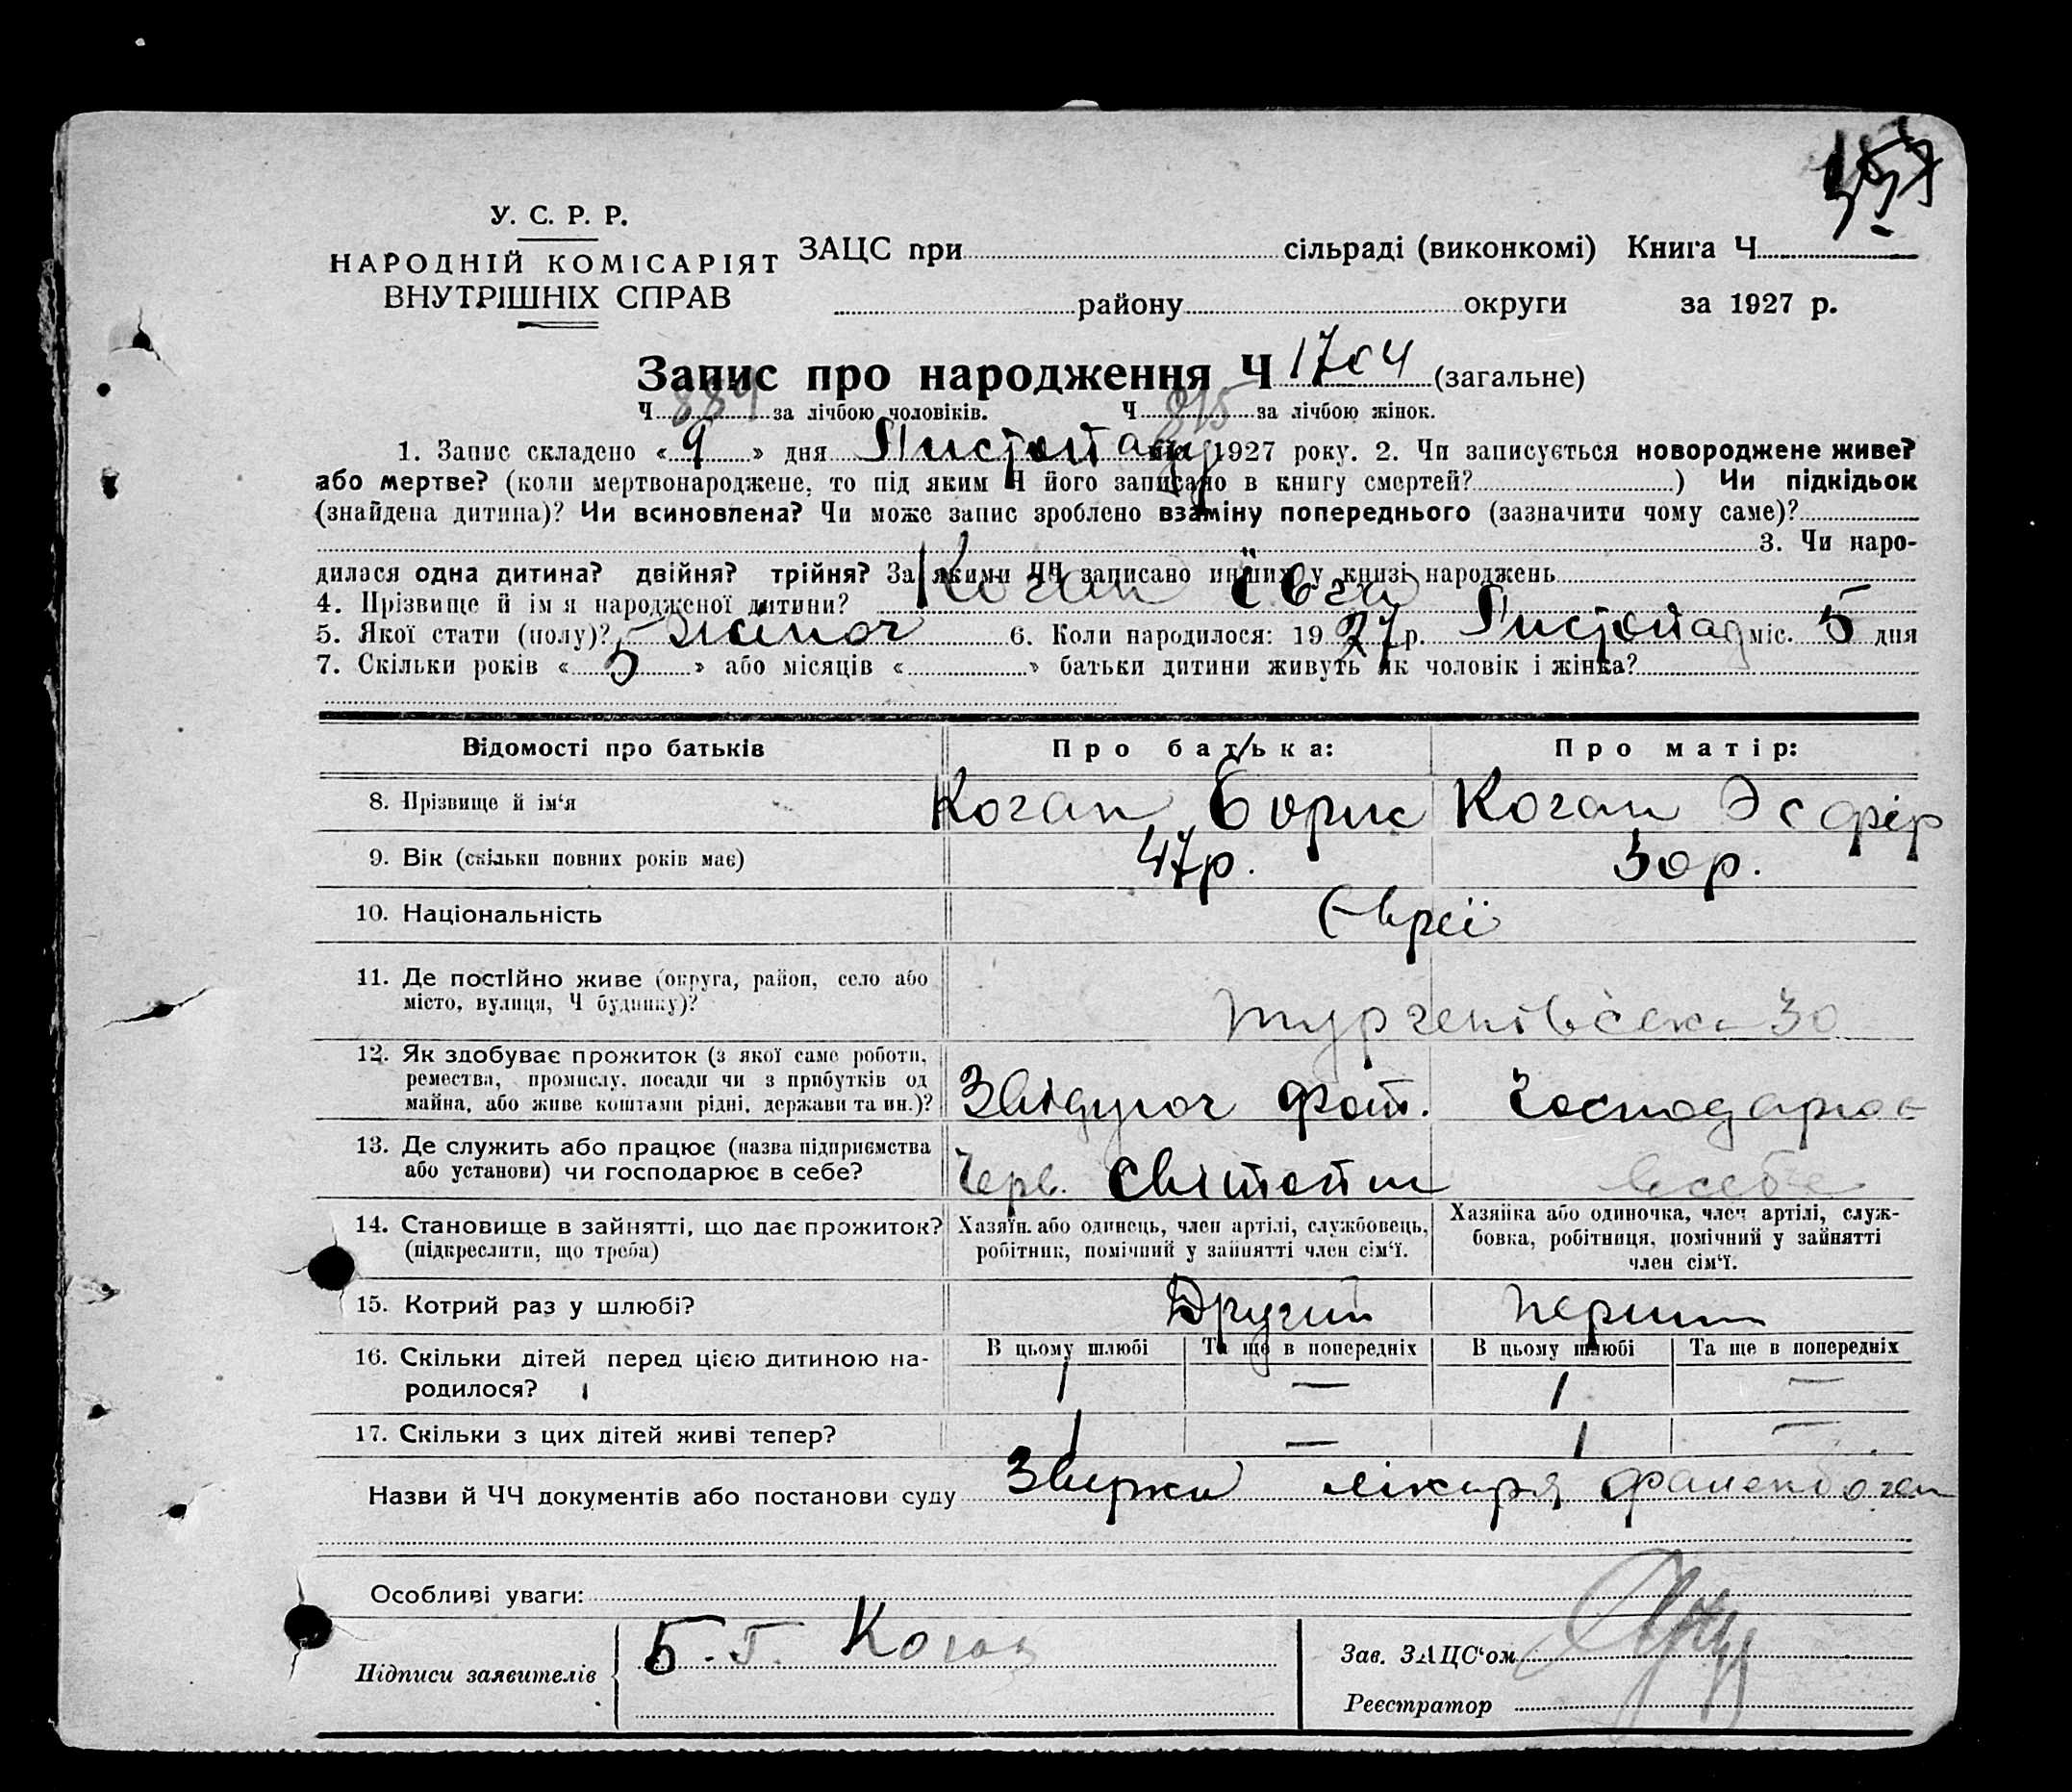 У. С. Р. Р.
НАРОДНІЙ КОМІСАРІЯТ
ВНУТРІШНІХ СПРАВ
ЗАЦС при сільраді (виконкомі) Книга Ч
району округи за 1927 р.
Запис про народження Ч 1704 (загальне)
Ч 889 за лічбою чоловіків. Ч 815 за лічбою жінок.
1. Запис складено « 9 » дня Листопаду 1927 року. 2. Чи записується новороджене живе?
або мертве? (коли мертвонароджене, то під яким Ч його записано в книгу смертей? ) Чи підкідьок
(знайдена дитина)? Чи всиновлена? Чи може запис зроблено взаміну попереднього (зазначити чому саме)?
3. Чи наро-
дилася одна дитина? двійня? трійня? За якими ЧЧ записано инших у книзі народжень
4. Прізвище й ім'я народженої дитини? Коган Єва
5. Якої стати (полу)? жіноч 6. Коли народилося: 1927 р. Листопад міс. 5 дня
7. Скільки років « 5 » або місяців « » батьки дитини живуть як чоловік і жінка?
Відомості про батьків Про батька: Про матір:
8. Прізвище й ім'я Коган Борис Коган Эсфір
9. Вік (скільки повних років має) 47р. 30р.
10. Національність Євреї
11. Де постійно живе (округа, район, село або
місто, вулиця, Ч будинку)? Тургенівська 30
12. Як здобуває прожиток (з якої саме роботи,
ремества, промислу, посади чи з прибутків од
майна, або живе коштами рідні, держави та ин.)? Звідуюч фот. господарює
13. Де служить або працює (назва підприємства
або установи) чи господарює в себе? Черв. Світопис в себе
14. Становище в зайнятті, що дає прожиток?
(підкреслити, що треба)
Хазяїн. або одинець, член артілі, службовець,
робітник, помічний у зайнятті член сім'ї.
Хазяйка або одиночка, член артілі, служ-
бовка, робітниця, помічний у зайнятті
член сім'ї.
15. Котрий раз у шлюбі? Другий перший
В цьому шлюбі Та ще в попередніх В цьому шлюбі Та ще в попередніх
16. Скільки дітей перед цією дитиною на-
родилося? 1 — 1 —
17. Скільки з цих дітей живі тепер? 1 — 1 —
Назви й ЧЧ документів або постанови суду лікаря
Особливі уваги:
Підписи заявителів Б. Г. Коган
Зав. ЗАЦС'ом
Реєстратор